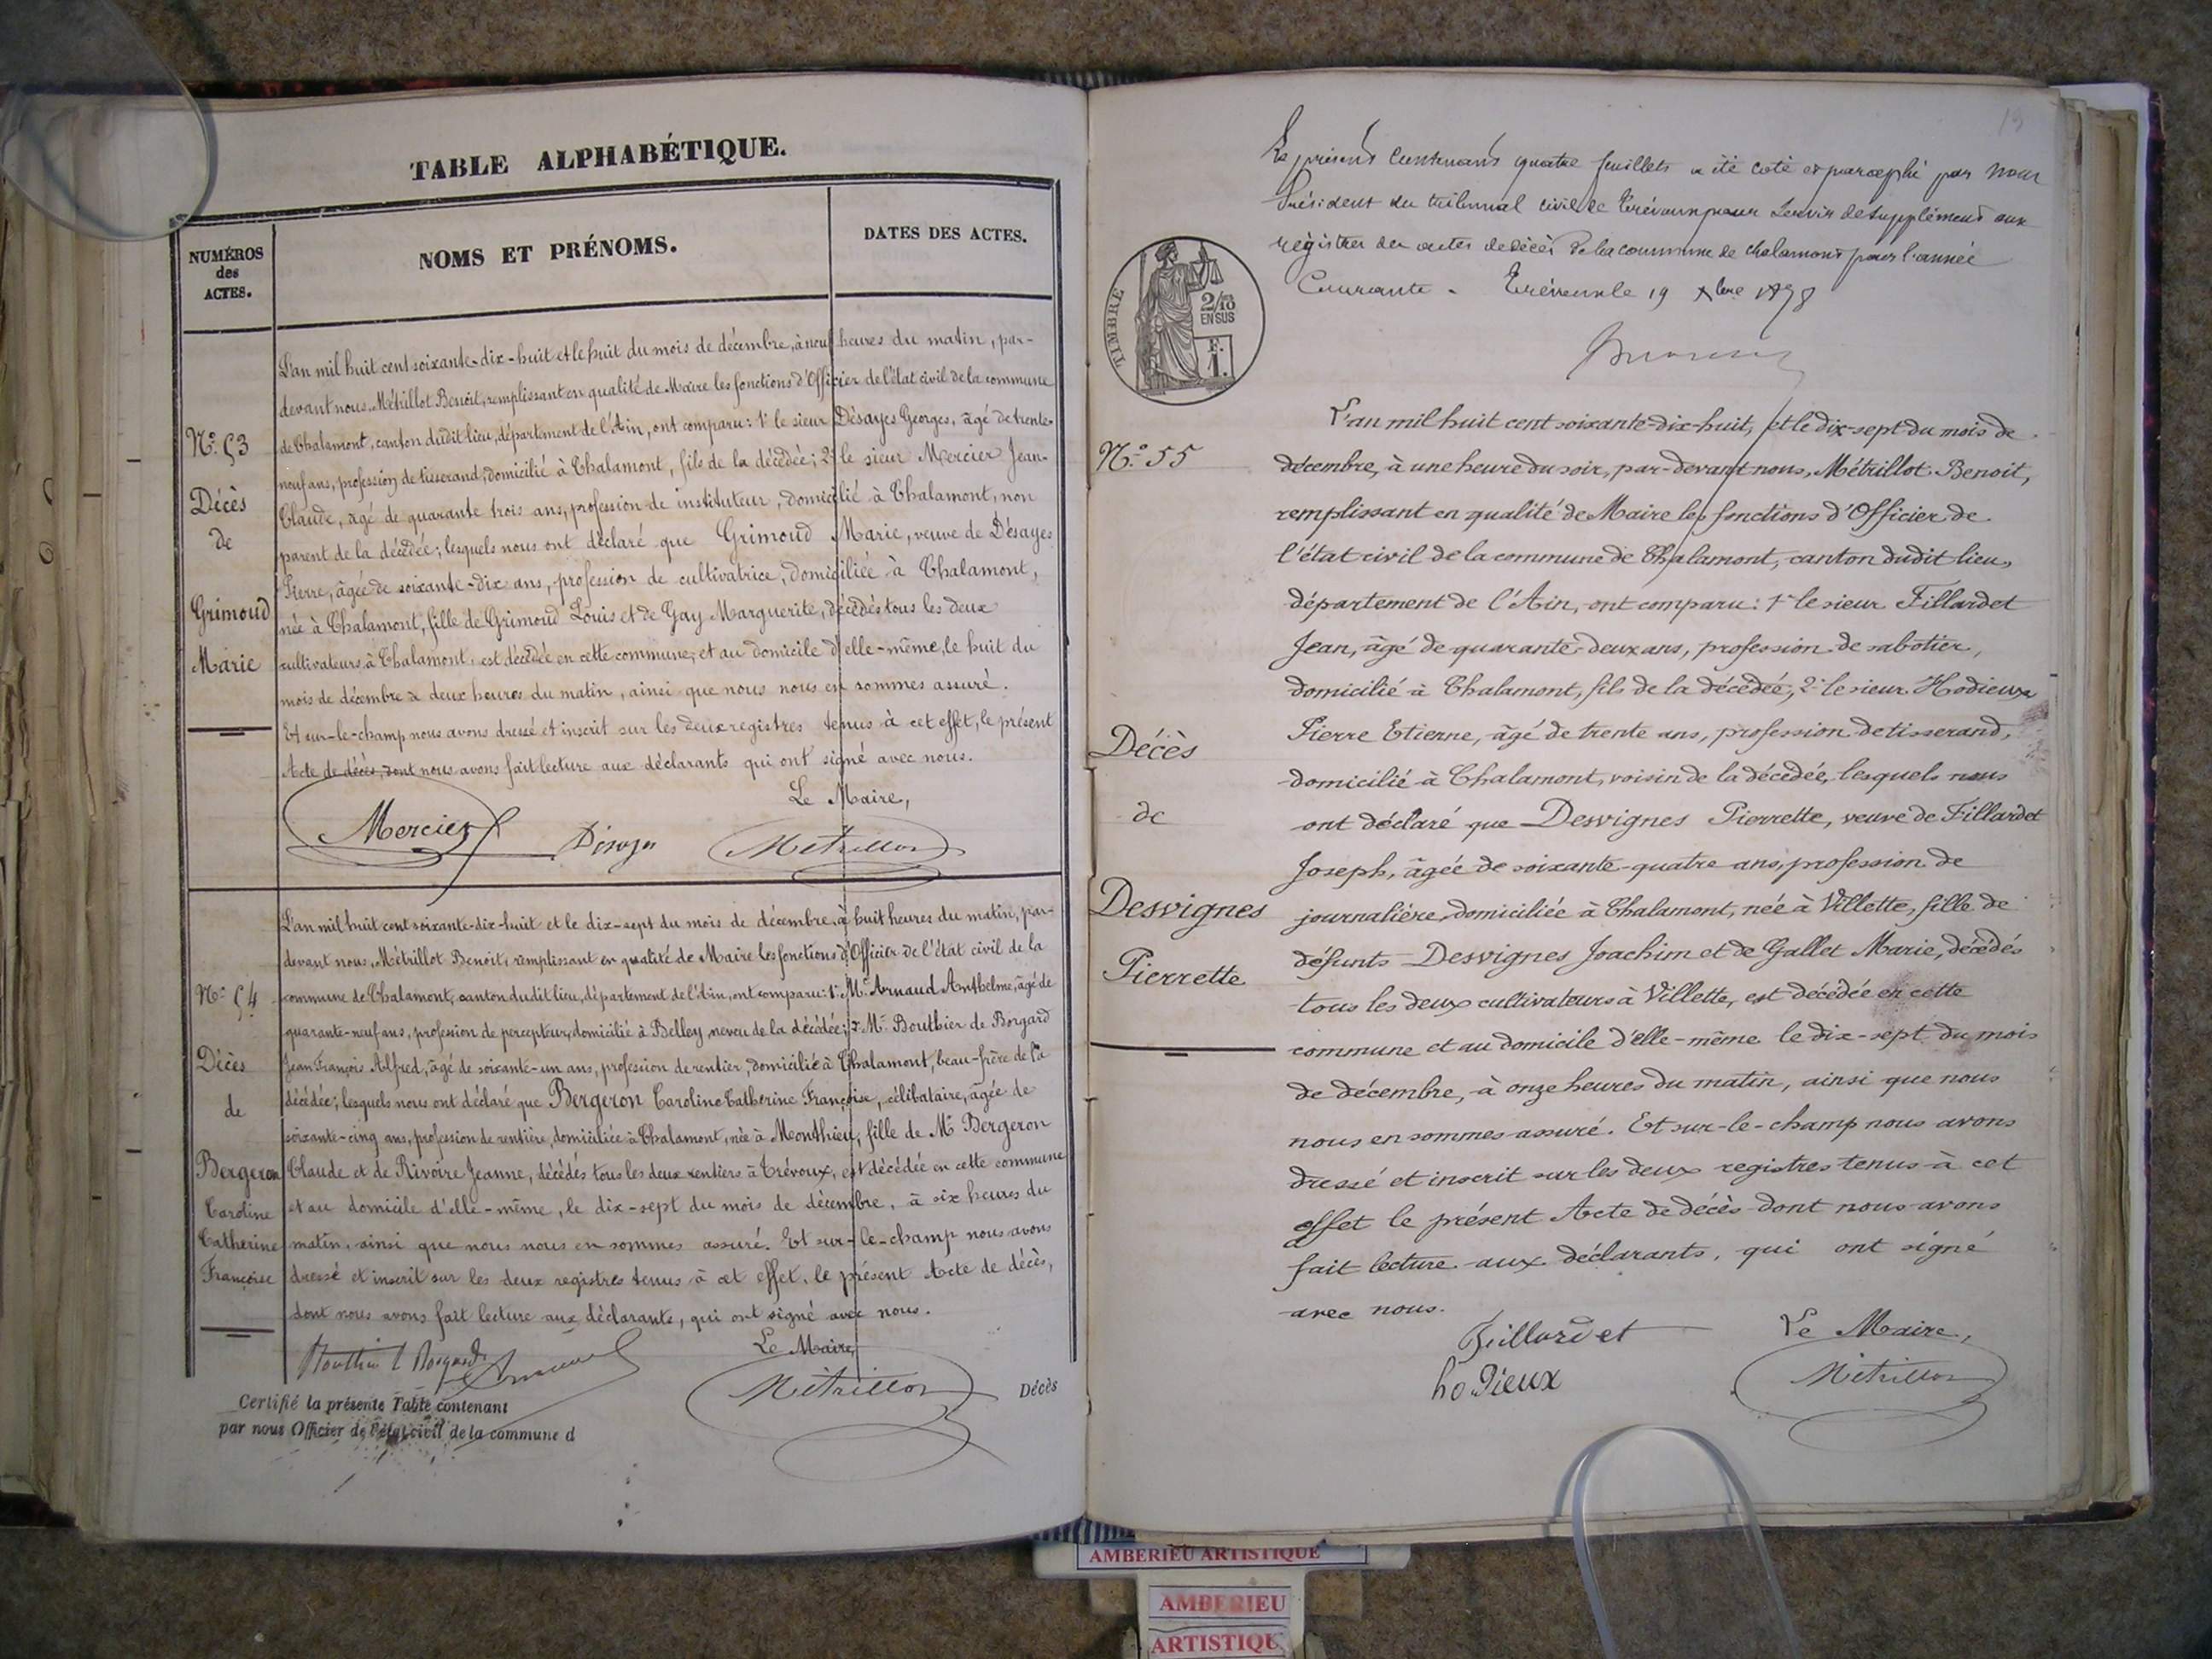 TABLE ALPHABÉTIQUE.
NUMÉROS
des
ACTES.
NOMS ET PRÉNOMS.
DATES DES ACTES.
N.º 53
Décès
de
Grimoud
Marie
L'an mil huit cent soixante-dix-huit et le huit du mois de décembre, à neuf heures du matin, par-
devant nous, Métrillot Benoit, remplissant en qualité de Maire les fonctions d'Officier de l'état civil de la commune
de Chalamont, canton dudit lieu, département de l'Ain, ont comparu: 1º le sieur Désayes Georges, âgé de trente-
neuf ans, profession de tisserand, domicilié à Chalamont, fils de la décédée; 2º le sieur Mercier Jean-
Claude, âgé de quarante trois ans, profession de instituteur, domicilié à Chalamont, non
parent de la décédée; lesquels nous ont déclaré que Grimoud Marie, veuve de Désayes
Pierre, âgée de soixante-dix ans, profession de cultivatrice, domiciliée à Chalamont,
née à Chalamont, fille de Grimoud Louis et de Gay Marguerite, décédés tous les deux
cultivateurs à Chalamont, est décédée en cette commune, et au domicile d'elle-même, le huit du
mois de décembre à deux heures du matin, ainsi que nous nous en sommes assuré.
Et sur-le-champ nous avons dressé et inscrit sur les deux registres tenus à cet effet, le présent
Acte de décès, dont nous avons fait lecture aux déclarants qui ont signé avec nous.
Le Maire,
Mercier Désayes Métrillot
N.º 54
Décès
de
Bergeron
Caroline
Catherine
Françoise
L'an mil huit cent soixante-dix-huit et le dix-sept du mois de décembre, à huit heures du matin, par-
devant nous, Métrillot Benoit, remplissant en qualité de Maire les fonctions d'Officier de l'état civil de la
commune de Chalamont, canton dudit lieu, département de l'Ain, ont comparu: 1º Mr Arnaud Anthelme, âgé de
quarante-neuf ans, profession de percepteur, domicilié à Belley, neveu de la décédée; 2º Mr Bouthier de Borgard
Jean François Alfred, âgé de soixante-un ans, profession de rentier, domicilié à Chalamont, beau-frère de la
décédée; lesquels nous ont déclaré que Bergeron Caroline Catherine Françoise, célibataire, âgée de
soixante-cinq ans, profession de rentière, domiciliée à Chalamont, née à Monthieu, fille de Mr Bergeron
Claude et de Rivoire Jeanne, décédés tous les deux rentiers à Trévoux, est décédée en cette commune
et au domicile d'elle-même, le dix-sept du mois de décembre, à six heures du
matin, ainsi que nous nous en sommes assuré. Et sur-le-champ nous avons
dressé et inscrit sur les deux registres tenus à cet effet, le présent Acte de décès,
dont nous avons fait lecture aux déclarants, qui ont signé avec nous.
Le Maire,
Métrillot
Certifié la présente Table contenant
par nous Officier de l'état civil de la commune d
Décès
19
Le présent contenant quatre feuillets a été coté et paraphé par nous
Président du tribunal civil de Trévoux pour servir de supplément aux
régistres des actes de décès de la commune de Chalamont pour l'année
Courante. Trévoux le 19 Xbre 1878
TIMBRE
2/10
EN SUS
F.
1.
N.º 55
Décès
de
Desvignes
Pierrette
L'an mil huit cent soixante-dix-huit, et le dix-sept du mois de
décembre, à une heure du soir, par-devant nous, Métrillot Benoit,
remplissant en qualité de Maire les fonctions d'Officier de
l'état civil de la commune de Chalamont, canton dudit lieu,
département de l'Ain, ont comparu: 1º le sieur Fillardet
Jean, âgé de quarante-deux ans, profession de sabotier,
domicilié à Chalamont, fils de la décédée; 2º le sieur Hodieux
Pierre Etienne, âgé de trente ans, profession de tisserand,
domicilié à Chalamont, voisin de la décédée, lesquels nous
ont déclaré que Desvignes Pierrette, veuve de Fillardet
Joseph, âgée de soixante-quatre ans, profession de
journalière, domiciliée à Chalamont, née à Villette, fille de
défunts Desvignes Joachim et de Gallet Marie, décédés
tous les deux cultivateurs à Villette, est décédée en cette
commune et au domicile d'elle-même le dix-sept du mois
de décembre, à onze heures du matin, ainsi que nous
nous en sommes assuré. Et sur-le-champ nous avons
dressé et inscrit sur les deux registres tenus à cet
effet le présent Acte de décès dont nous avons
fait lecture aux déclarants, qui ont signé
avec nous.
Fillardet
Le Maire,
hodieux
Métrillot
AMBERIEU ARTISTIQUE
AMBERIEU
ARTISTIQUE